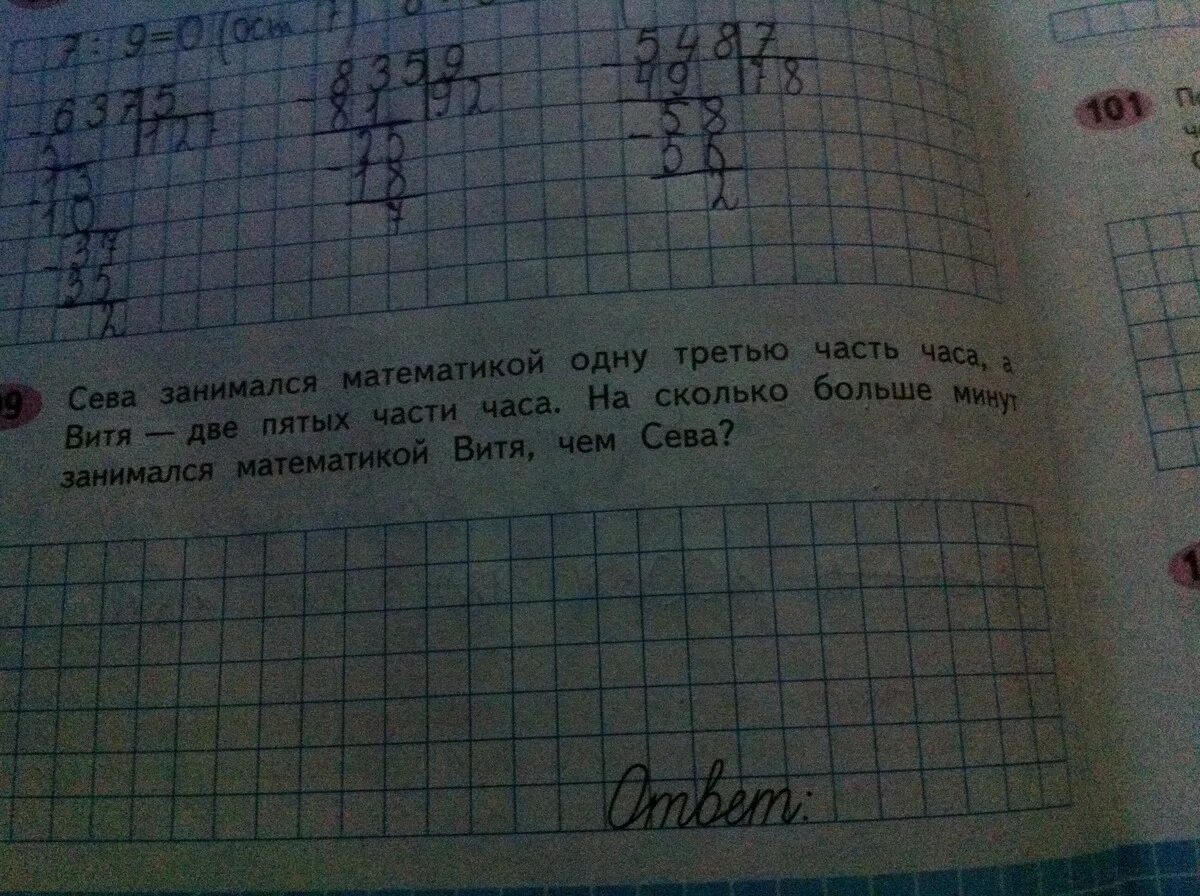 7 : 9 = 0 (ост. 7)
637 5
5 127
13
10
37
35
2
835 9
81 92
25
18
7
548 7
49 78
58
56
2
Сева занимался математикой одну третью часть часа, а
Витя — две пятых части часа. На сколько больше минут
занимался математикой Витя, чем Сева?
Ответ:
101